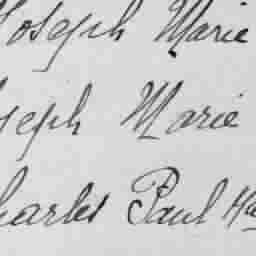 Joseph Marie
Joseph Marie
Charles Paul